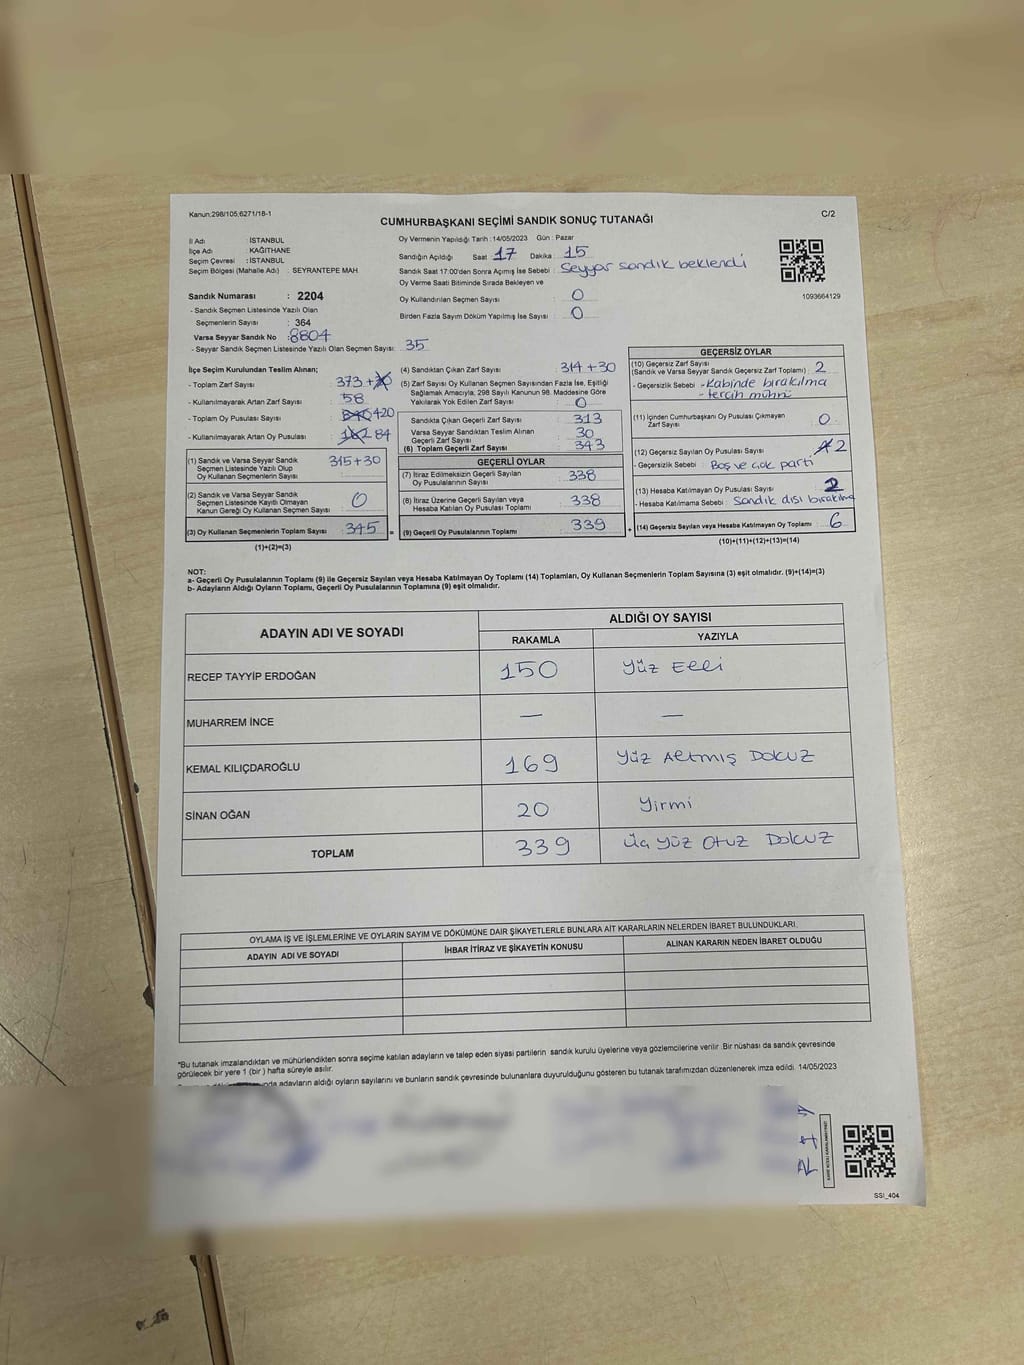 Kanun:298/105;6271/18-1
C/2
CUMHURBAŞKANI SEÇİMİ SANDIK SONUÇ TUTANAĞI
İl Adı : İSTANBUL
İlçe Adı : KAĞITHANE
Seçim Çevresi : İSTANBUL
Seçim Bölgesi (Mahalle Adı) : SEYRANTEPE MAH.
Sandık Numarası : 2204
- Sandık Seçmen Listesinde Yazılı Olan
Seçmenlerin Sayısı : 364
Varsa Seyyar Sandık No : 8804
- Seyyar Sandık Seçmen Listesinde Yazılı Olan Seçmen Sayısı: 35
Oy Vermenin Yapıldığı Tarih : 14/05/2023 Gün : Pazar
Sandığın Açıldığı Saat 17 Dakika : 15
Sandık Saat 17:00'den Sonra Açımış İse Sebebi : Seyyar sandık beklendi
Oy Verme Saati Bitiminde Sırada Bekleyen ve
Oy Kullandırılan Seçmen Sayısı : 0
Birden Fazla Sayım Döküm Yapılmış İse Sayısı : 0
1093664129
İlçe Seçim Kurulundan Teslim Alınan;
- Toplam Zarf Sayısı : 373+
- Kullanılmayarak Artan Zarf Sayısı : 58
- Toplam Oy Pusulası Sayısı : 420
- Kullanılmayarak Artan Oy Pusulası : 84
(1) Sandık ve Varsa Seyyar Sandık
Seçmen Listesinde Yazılı Olup
Oy Kullanan Seçmenlerin Sayısı : 315+30
(2) Sandık ve Varsa Seyyar Sandık
Seçmen Listesinde Kayıtlı Olmayan
Kanun Gereği Oy Kullanan Seçmen Sayısı : 0
(3) Oy Kullanan Seçmenlerin Toplam Sayısı : 345 =
(1)+(2)=(3)
(4) Sandıktan Çıkan Zarf Sayısı : 314+30
(5) Zarf Sayısı Oy Kullanan Seçmen Sayısından Fazla İse, Eşitliği
Sağlamak Amacıyla, 298 Sayılı Kanunun 98. Maddesine Göre
Yakılarak Yok Edilen Zarf Sayısı : 0
Sandıkta Çıkan Geçerli Zarf Sayısı : 313
Varsa Seyyar Sandıktan Teslim Alınan
Geçerli Zarf Sayısı : 30
(6) Toplam Geçerli Zarf Sayısı : 343
GEÇERLİ OYLAR
(7) İtiraz Edilmeksizin Geçerli Sayılan
Oy Pusulasının Sayısı : 338
(8) İtiraz Üzerine Geçerli Sayılan veya
Hesaba Katılan Oy Pusulası Toplamı : 338
(9) Geçerli Oy Pusulalarının Toplamı : 339 +
GEÇERSİZ OYLAR
(10) Geçersiz Zarf Sayısı
(Sandık ve Varsa Seyyar Sandık Geçersiz Zarf Toplamı) : 2
- Geçersizlik Sebebi : - Kabinde bırakılma
- tercih mührü
(11) İçinden Cumhurbaşkanı Oy Pusulası Çıkmayan
Zarf Sayısı : 0
(12) Geçersiz Sayılan Oy Pusulası Sayısı : 2
- Geçersizlik Sebebi : Boş ve çok parti
(13) Hesaba Katılmayan Oy Pusulası Sayısı : 2
- Hesaba Katılmama Sebebi : Sandık dışı bırakılma
(14) Geçersiz Sayılan veya Hesaba Katılmayan Oy Toplamı : 6
(10)+(11)+(12)+(13)=(14)
NOT:
a- Geçerli Oy Pusulalarının Toplamı (9) ile Geçersiz Sayılan veya Hesaba Katılmayan Oy Toplamı (14) Toplamları, Oy Kullanan Seçmenlerin Toplam Sayısına (3) eşit olmalıdır. (9)+(14)=(3)
b- Adayların Aldığı Oyların Toplamı, Geçerli Oy Pusulalarının Toplamına (9) eşit olmalıdır.
ADAYIN ADI VE SOYADI
ALDIĞI OY SAYISI
RAKAMLA YAZIYLA
RECEP TAYYİP ERDOĞAN 150 Yüz Elli
MUHARREM İNCE — —
KEMAL KILIÇDAROĞLU 169 Yüz Altmış Dokuz
SİNAN OĞAN 20 Yirmi
TOPLAM 339 Üç Yüz Otuz Dokuz
OYLAMA İŞ VE İŞLEMLERİNE VE OYLARIN SAYIM VE DÖKÜMÜNE DAİR ŞİKAYETLERLE BUNLARA AİT KARARLARIN NELERDEN İBARET BULUNDUKLARI.
ADAYIN ADI VE SOYADI İHBAR İTİRAZ VE ŞİKAYETİN KONUSU ALINAN KARARIN NEDEN İBARET OLDUĞU
*Bu tutanak imzalandıktan ve mühürlendikten sonra seçime katılan adayların ve talep eden siyasi partilerin sandık kurulu üyelerine veya gözlemcilerine verilir .Bir nüshası da sandık çevresinde
görülecek bir yere 1 (bir ) hafta süreyle asılır.
adayların aldığı oyların sayılarını ve bunların sandık çevresinde bulunanlara duyurulduğunu gösteren bu tutanak tarafımızdan düzenlenerek imza edildi. 14/05/2023
SSI_404